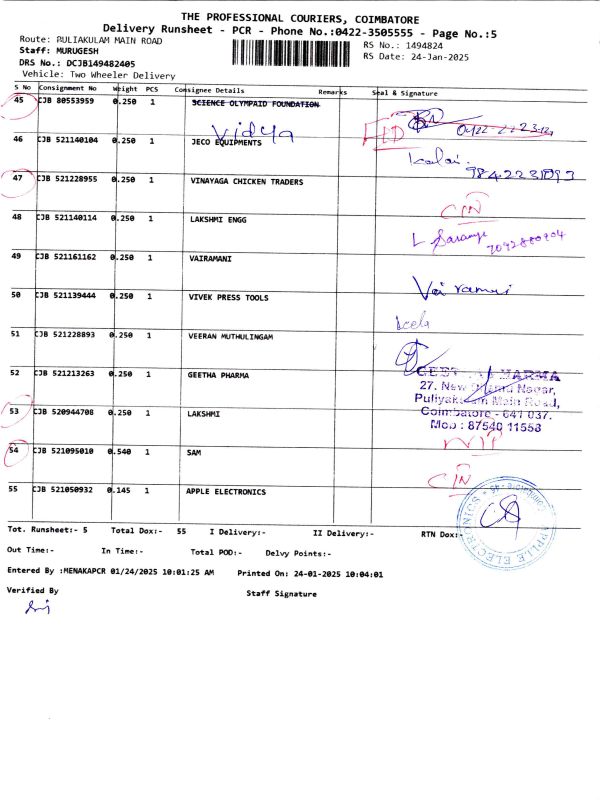 THE PROFESSIONAL COURIERS, COIMBATORE
Delivery Runsheet - PCR - Phone No.:0422-3505555 - Page No.:5
Route: PULIAKULAM MAIN ROAD
RS No.: 1494824
Staff: MURUGESH
RS Date: 24-Jan-2025
DRS No.: DCJB149482405
Vehicle: Two Wheeler Delivery
S No Consignment No Weight PCS Consignee Details Remarks Seal & Signature
45 CJB 80553959 0.250 1 SCIENCE OLYMPAID FOUNDATION
Vidya
46 CJB 521140104 0.250 1 JECO EQUIPMENTS
Kalai
9842231093
47 CJB 521228955 0.250 1 VINAYAGA CHICKEN TRADERS
CIN
48 CJB 521140114 0.250 1 LAKSHMI ENGG
L
7092880904
49 CJB 521161162 0.250 1 VAIRAMANI
50 CJB 521139444 0.250 1 VIVEK PRESS TOOLS
51 CJB 521228893 0.250 1 VEERAN MUTHULINGAM
52 CJB 521213263 0.250 1 GEETHA PHARMA
27. New Nagar,
Puliyakulam Main Road,
Coimbatore - 641 037.
Mob : 87540 11558
53 CJB 520944708 0.250 1 LAKSHMI
54 CJB 521095010 0.540 1 SAM
CIN
55 CJB 521050932 0.145 1 APPLE ELECTRONICS
APPLE ELECTRONICS
Tot. Runsheet:- 5 Total Dox:- 55 I Delivery:- II Delivery:- RTN Dox:-
Out Time:- In Time:- Total POD:- Delvy Points:-
Entered By :MENAKAPCR 01/24/2025 10:01:25 AM Printed On: 24-01-2025 10:04:01
Verified By Staff Signature